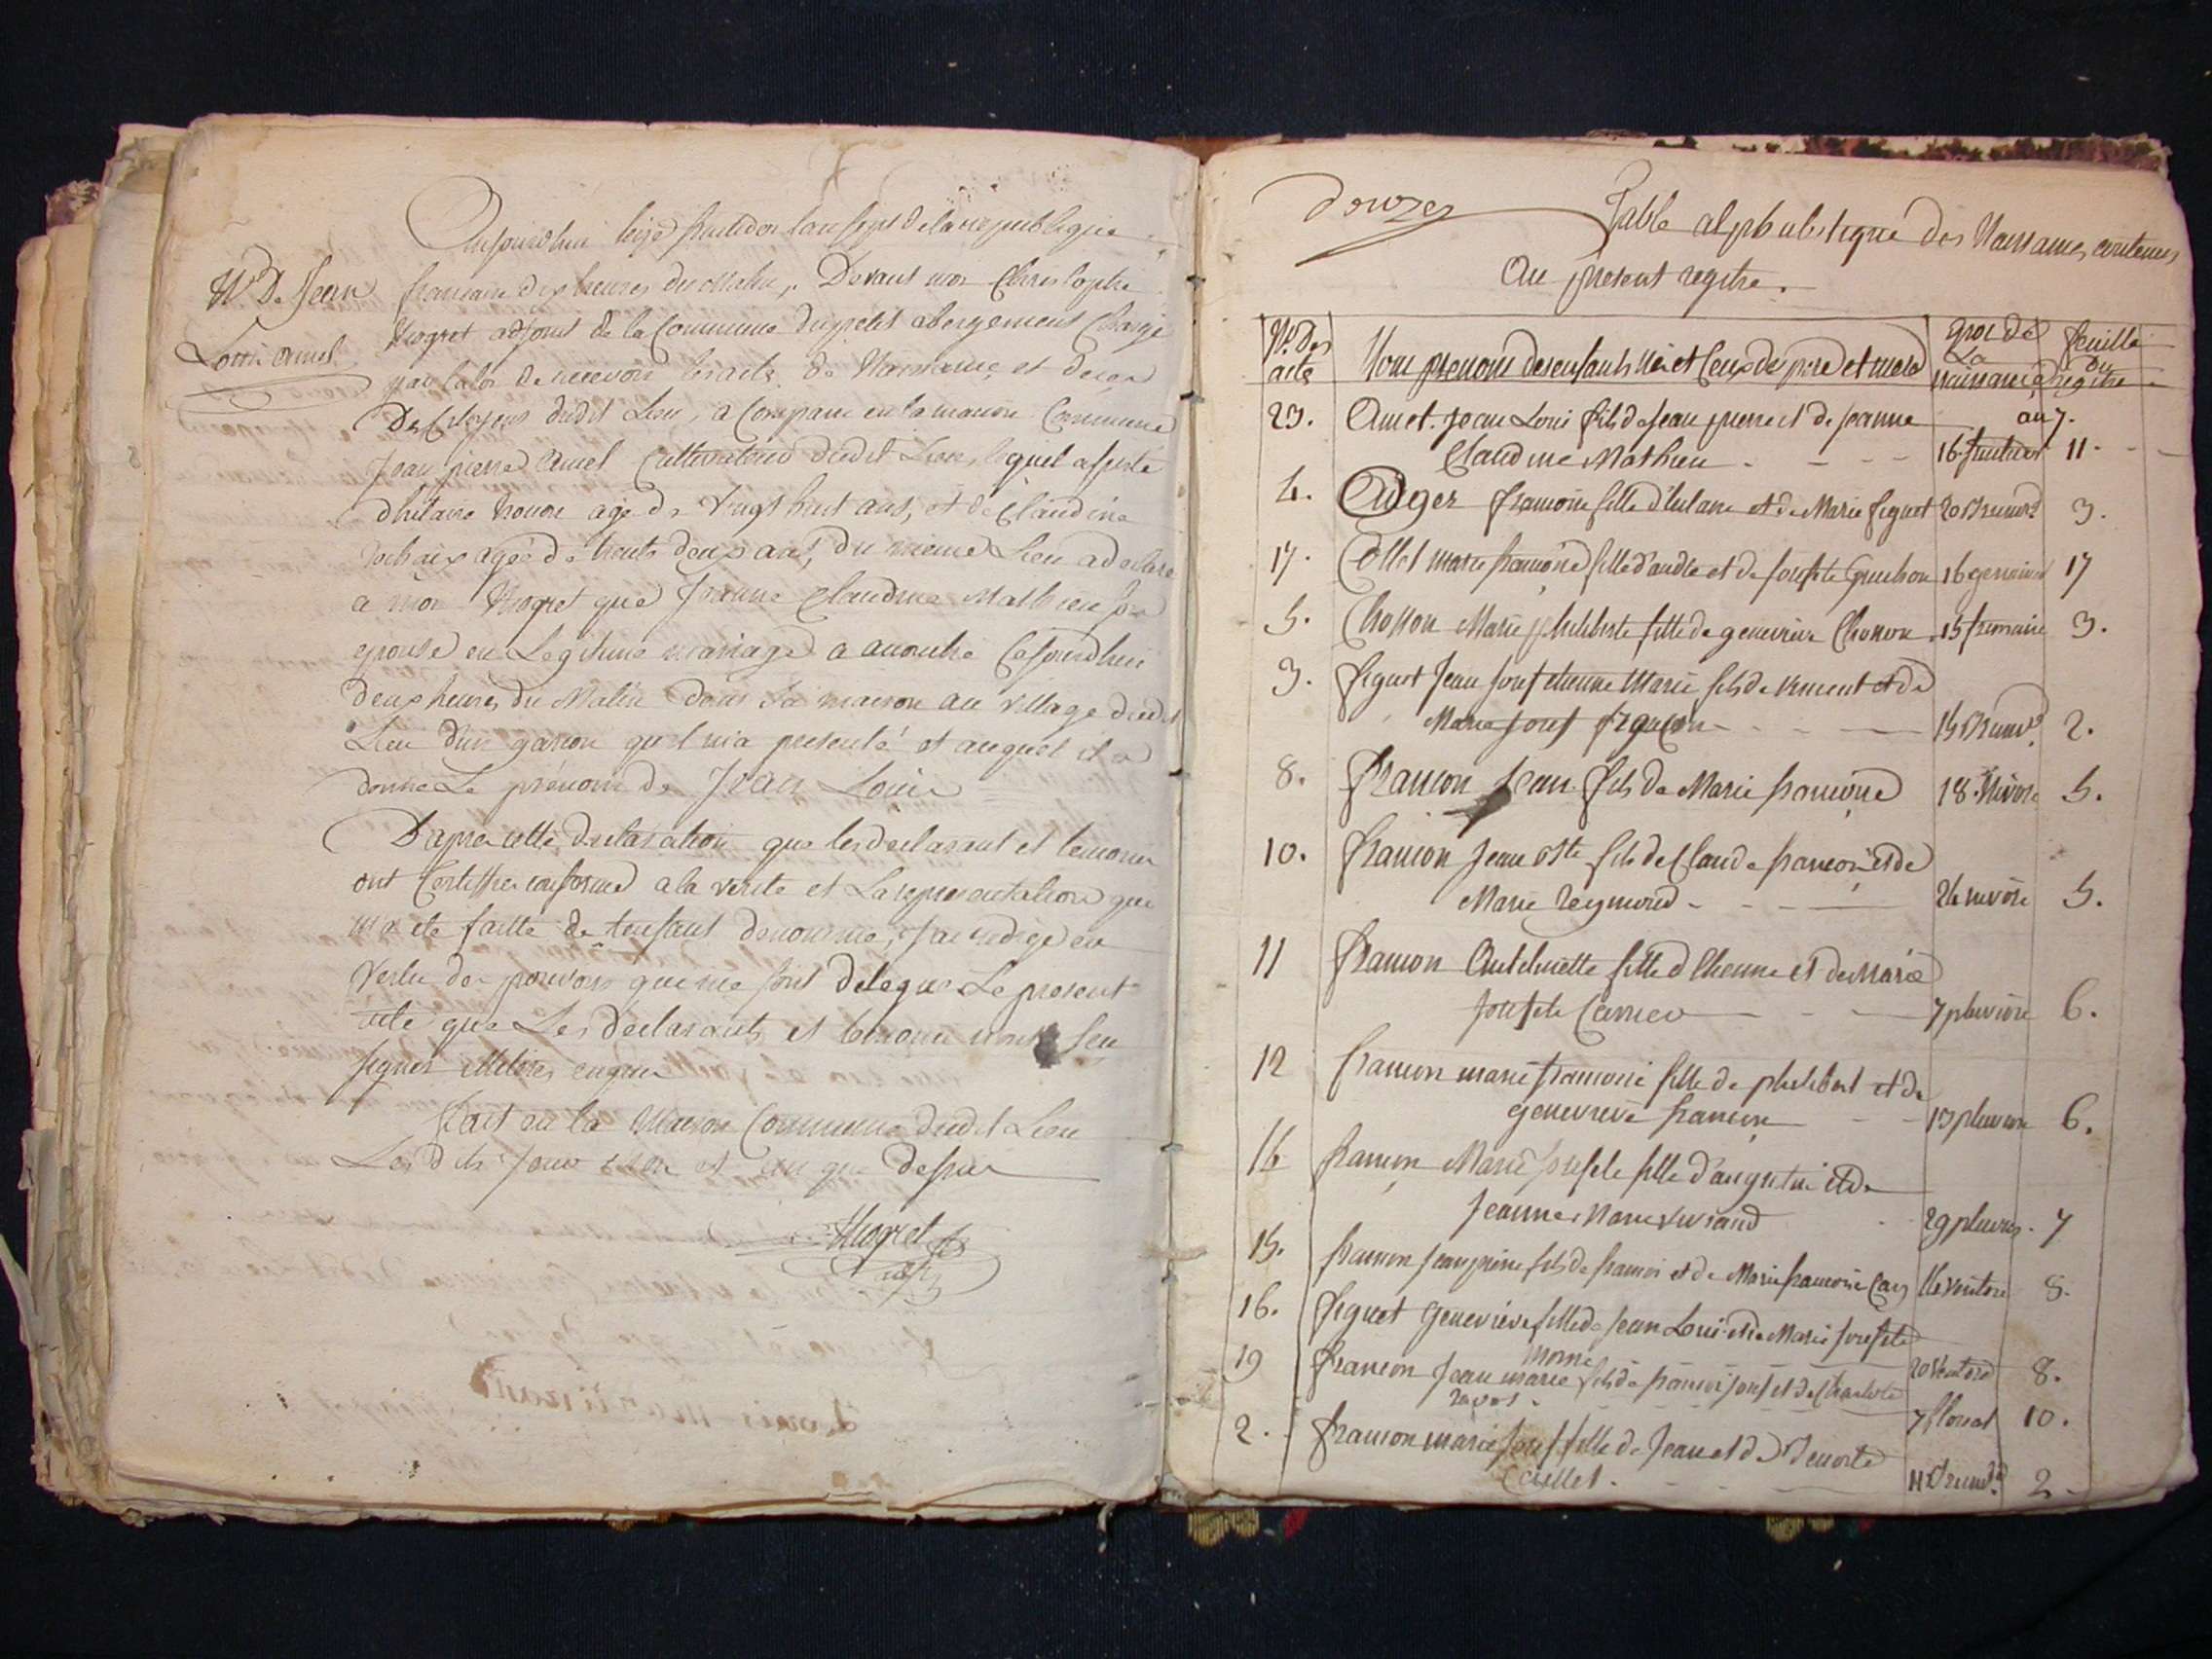 Aujourdhui seize fructidor lan sept de la republique
N. De Jean
Louis Amet
francaise dix heures du Matin, Devant moi Christophe
Mogret adjoint de la Commune du petit abergement Charge
par la loi de recevoir les acts de Naissance et deces
Des Citoyens dudit Lieu, a Comparu en la maison Commune
Jean pierre Amet Cultivateur dudit Lieu, lequel assisté
d'hilaire agé de vingt huit ans, et de Claudine
agée de trente deux ans, du meme Lieu a declaré
a moi Mogret que Jeanne Claudine Mathieu son
epouse en Legitime mariage a acouché Cejourdhui
deux heures du Matin dans sa maison au village dudit
Lieu d'un garson qu'il m'a presenté et auquel il a
donné Le prénom de Jean Louis
D'apres cette declaration que les declarant et temoins
ont Certiffiés conforme a la verité et La representation que
m'a ete faitte de lenfant denommé, J'ai redigé en
Vertu des pouvoirs qui me sont delegués Le present
acte que Les declarants et temoins n'ont seu
signer illitérés enquis
fait en la Maison Commune dudit Lieu
Les dits Jour mois et an que dessus
Mogret
adj
douzes
Table alphabetique des Naissances contenues
Au present registre.
N. Des acte | Nom prenoms des enfants née et Ceux de pere et mere | epoc de La naissance | feuille du registre
an 7.
23. Amet. Jean Louis fils de Jean pierre et de Jeanne
Claudine Mathieu - - - 16. fructidor 11 - -
4. Auger francoise fille d'hilaire et de Marie figuet 20 Brumre 3.
17. Collet marie francoise fille d'andre et de Josephte 16 germinal 17
5. Chosson Marie philiberte fille de genevieve Chosson 15 frimaire 3.
3. figuet Jean Josef etienne Marie fils de vincent et de
Marie Josef 15 Brumre 2.
8. francon Jean fils de Marie francoise 18. Nivose 5.
10. francon Jean Bte fils de Claude francois et de
Marie Reymond - - - 24 nivose 5.
11 francon Antelmette fille d'Etienne et de Marie
Josefte 7 pluviose 6.
12 francon marie francoise fille de philibert et de
genevieve francon - - 13 pluviose 6.
14 francon Marie Josefte fille d'augustin et de
Jeanne Marie 29 pluvios. 7
15. francon Jean pierre fils de francois et de Marie francoise ventose 8.
16. figuet Genevieve fille de Jean Louis et de Marie Josefte
20 Ventose 8.
19 francon Jean marie fils de francois Josef et de Charlote
7 floreal 10.
2. francon marie Josef fille de Jean et de Benoite
Collet. - - - 11 Brumre 2 -